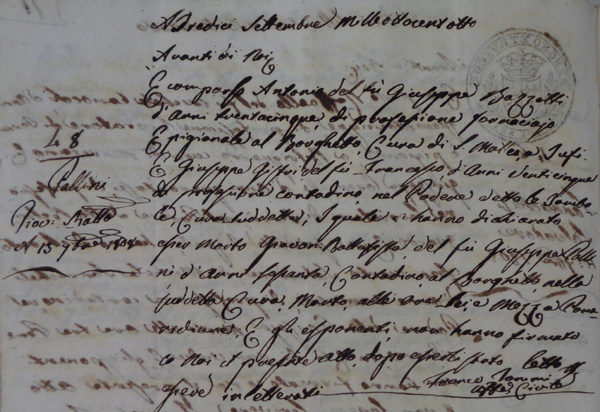 A Tredici Settembre Mille ottocent otto
Avanti di Noi
È comparso Antonio del fù Giuseppe Bazzetti
d'Anni trentacinque di professione fornaciajo
E pigionale al Borghetto, Cura di S. Matteo
E Giuseppe del fù Francesco d'Anni Venticinque
di professione contadino, nel Podere detto le
Cura suddetta, I quali hanno dichiarato
esser Morto Giovan Battista del fù Giuseppe Palli
ni d'Anni sessanta, Contadino, al Borghetto nella
suddetta Cura, Morto, alle ore sei, e Mezza Pome
ridiane, E gli esponenti non hanno firmato
con Noi il presente atto, dopo esserli stato letto
per essere inletterati
48
Pallini
Giov: Batta
A 13 7bre 1808